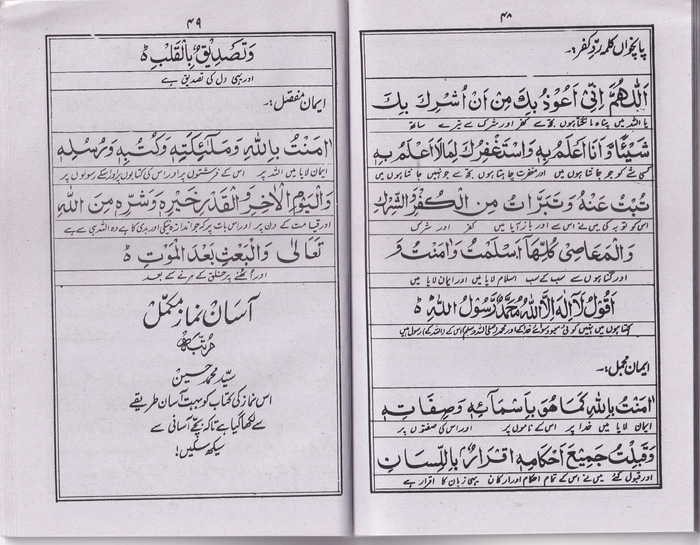 ۴۸
پانچواں کلمہ ردّ کفر:-
اَللّٰهُمَّ اِنِّیْٓ اَعُوْذُ بِكَ مِنْ اَنْ اُشْرِكَ بِكَ
یا اللہ میں پناہ مانگتا ہوں تجھ سے کفر اور شرک سے تیرے ساتھ
شَیْئًا وَّاَنَا اَعْلَمُ بِهٖ وَاسْتَغْفِرُكَ لِمَا لَا اَعْلَمُ بِهٖ
کسی شے کو جو جانتا ہوں میں اور مغفرت چاہتا ہوں تجھ سے جو نہیں جانتا ہوں میں
تُبْتُ عَنْهُ وَتَبَرَّاْتُ مِنَ الْكُفْرِ وَالشِّرْكِ
اس کو توبہ کی میں نے اس سے اور باز آیا میں کفر اور شرک
وَالْمَعَاصِیْ كُلِّهَا اَسْلَمْتُ وَاٰمَنْتُ وَ
اور گناہوں سے سب کے سب اسلام لایا میں اور ایمان لایا میں
اَقُوْلُ لَآ اِلٰهَ اِلَّا اللّٰهُ مُحَمَّدٌ رَّسُوْلُ اللّٰهِ ؕ
کہتا ہوں میں نہیں کوئی معبود سوائے خدا کے اور محمد اس کے اللہ کے رسول ہیں
ایمان مجمل:-
اٰمَنْتُ بِاللّٰهِ كَمَا هُوَ بِاَسْمَآئِهٖ وَصِفَاتِهٖ
ایمان لایا میں خدا پر اس کے ناموں پر اور اس کی صفتوں پر
وَقَبِلْتُ جَمِیْعَ اَحْكَامِهٖ اِقْرَارٌ بِاللِّسَانِ
اور قبول کئے میں نے اس کے تمام احکام اور ارکان یہی زبان کا اقرار ہے
۴۹
وَتَصْدِیْقٌ بِالْقَلْبِ ؕ
اور یہی دل کی تصدیق ہے
ایمان مفصل:-
اٰمَنْتُ بِاللّٰهِ وَمَلٰٓئِكَتِهٖ وَكُتُبِهٖ وَرُسُلِهٖ
ایمان لایا میں اللہ پر اس کے فرشتوں پر اور اس کی کتابوں پر اور اسکے رسولوں پر
وَالْیَوْمِ الْاٰخِرِ وَالْقَدْرِ خَیْرِهٖ وَشَرِّهٖ مِنَ اللّٰهِ
اور قیامت کے دن پر اور اس بات پر کہ جو اندازہ نیکی اور بدی کا ہے وہ اللہ ہی سے ہے
تَعَالٰی وَالْبَعْثِ بَعْدَ الْمَوْتِ ؕ
اور اٹھنے پر خلق کے مرنے کے بعد
آسان نماز مکمل
مرتبہ
سیّد محمد حسین
اس نماز کی کتاب کو بہت آسان طریقے
سے لکھا گیا ہے تاکہ بچے آسانی سے
سیکھ سکیں!